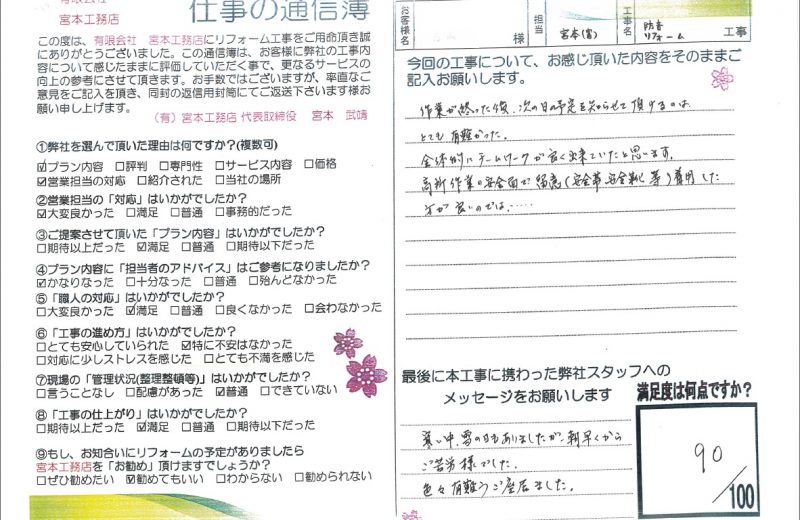 有限会社
宮本工務店
仕事の通信簿
この度は、有限会社 宮本工務店にリフォーム工事をご用命頂き誠
にありがとうございました。この通信簿は、お客様に弊社の工事内
容について感じたままに評価していただく事で、更なるサービスの
向上の参考にさせて頂きます。お手数ではございますが、率直なご
意見をご記入を頂き、同封の返信用封筒にてご返送下さいます様お
願い申し上げます。
(有)宮本工務店 代表取締役 宮本 武靖
①弊社を選んで頂いた理由は何ですか?(複数可)
☑プラン内容 □評判 □専門性 □サービス内容 □価格
☑営業担当の対応 □紹介された □当社の場所
②営業担当の「対応」はいかがでしたか?
☑大変良かった □満足 □普通 □事務的だった
③ご提案させて頂いた「プラン内容」はいかがでしたか?
□期待以上だった ☑満足 □普通 □期待以下だった
④プラン内容に「担当者のアドバイス」はご参考になりましたか?
☑かなりなった □十分なった □普通 □殆んどなかった
⑤「職人の対応」はいかがでしたか?
□大変良かった ☑満足 □普通 □良くなかった □会わなかった
⑥「工事の進め方」はいかがでしたか?
□とても安心していられた ☑特に不安はなかった
□対応に少しストレスを感じた □とても不満を感じた
⑦現場の「管理状況(整理整頓等)」はいかがでしたか?
□言うことなし □配慮があった ☑普通 □できていない
⑧「工事の仕上がり」はいかがでしたか?
□期待以上だった ☑満足 □普通 □期待以下だった
⑨もし、お知合いにリフォームの予定がありましたら
宮本工務店を「お勧め」頂けますでしょうか?
□ぜひ勧めたい ☑勧めてもいい □わからない □勧められない
お客様名
様
担当
宮本(富)
工事名
防音
リフォーム
工事
今回の工事について、お感じ頂いた内容をそのままご
記入お願いします。
作業が終った後、次の日の予定を知らせて頂けるのは
とても有難かった。
全体的にチームワークが良く出来ていたと思います。
高所作業の安全面で留意(安全帯、安全靴 等)着用した
方が良いのでは……
最後に本工事に携わった弊社スタッフへの
メッセージをお願いします
寒い中、雪の日もありましたが、朝早くから
ご苦労様でした。
色々有難うご座居ました。
満足度は何点ですか?
90
/100